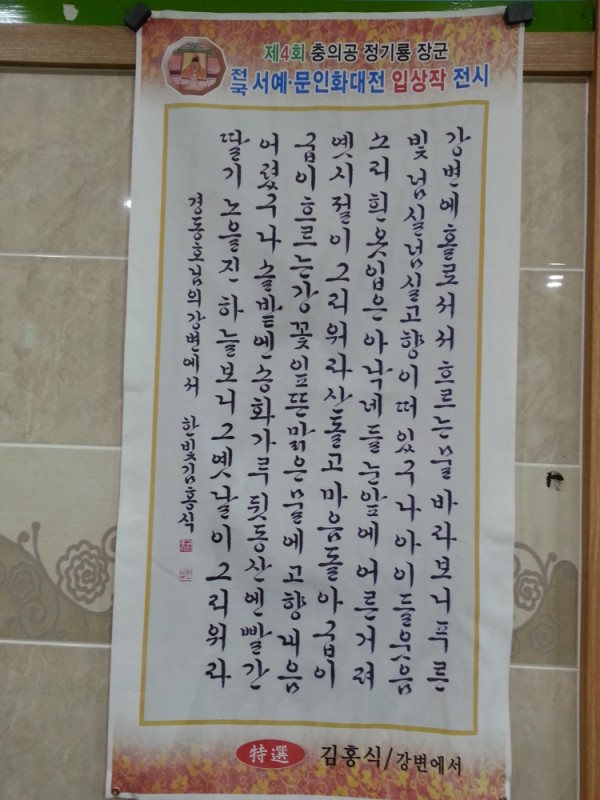 제4회 충의공 정기룡 장군
전국 서예·문인화대전 입상작 전시
강변에홀로서서흐르는물바라보니푸른
빛넘실넘실고향이떠있구나아이들웃음
소리흰옷입은아낙네들눈앞에어른거려
옛시절이그리워라산돌고마음돌아굽이
굽이흐르는강꽃잎뜬맑은물에고향내음
어렸구나솔밭엔송화가루뒷동산엔빨간
딸기노을진하늘보니그옛날이그리워라
경동호님의강변에서 한빛김홍식
特選 김홍식/강변에서